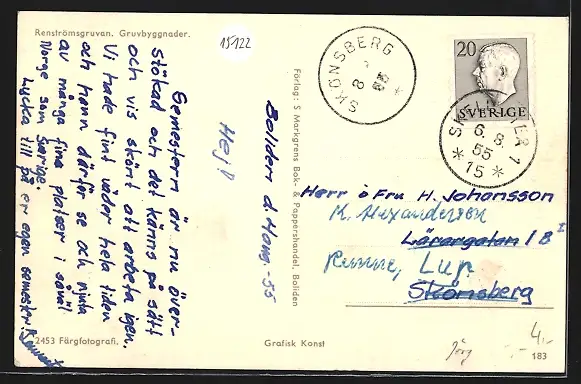 Renströmsgruvan. Gruvbyggnader.
15122
Boliden d. 4 aug. -55
Hej!
Semestern är nu över-
stökad och det känns på sätt
och vis skönt att arbeta igen.
Vi hade fint väder hela tiden
och hann därför se och njuta
av många fina platser i såväl
Norge som Sverige.
Lycka till på er egen semester.
2453 Färgfotografi.
Förlag: S Markgrens Bok- & Pappershandel, Boliden
Grafisk Konst
SKÖNSBERG
8 55
*
20
SVERIGE
6. 8.
55
* 15 *
Herr o Fru H. Johansson
K. Alexandersson
Lärargatan 1 B
Lup
Skönsberg
4.-
183